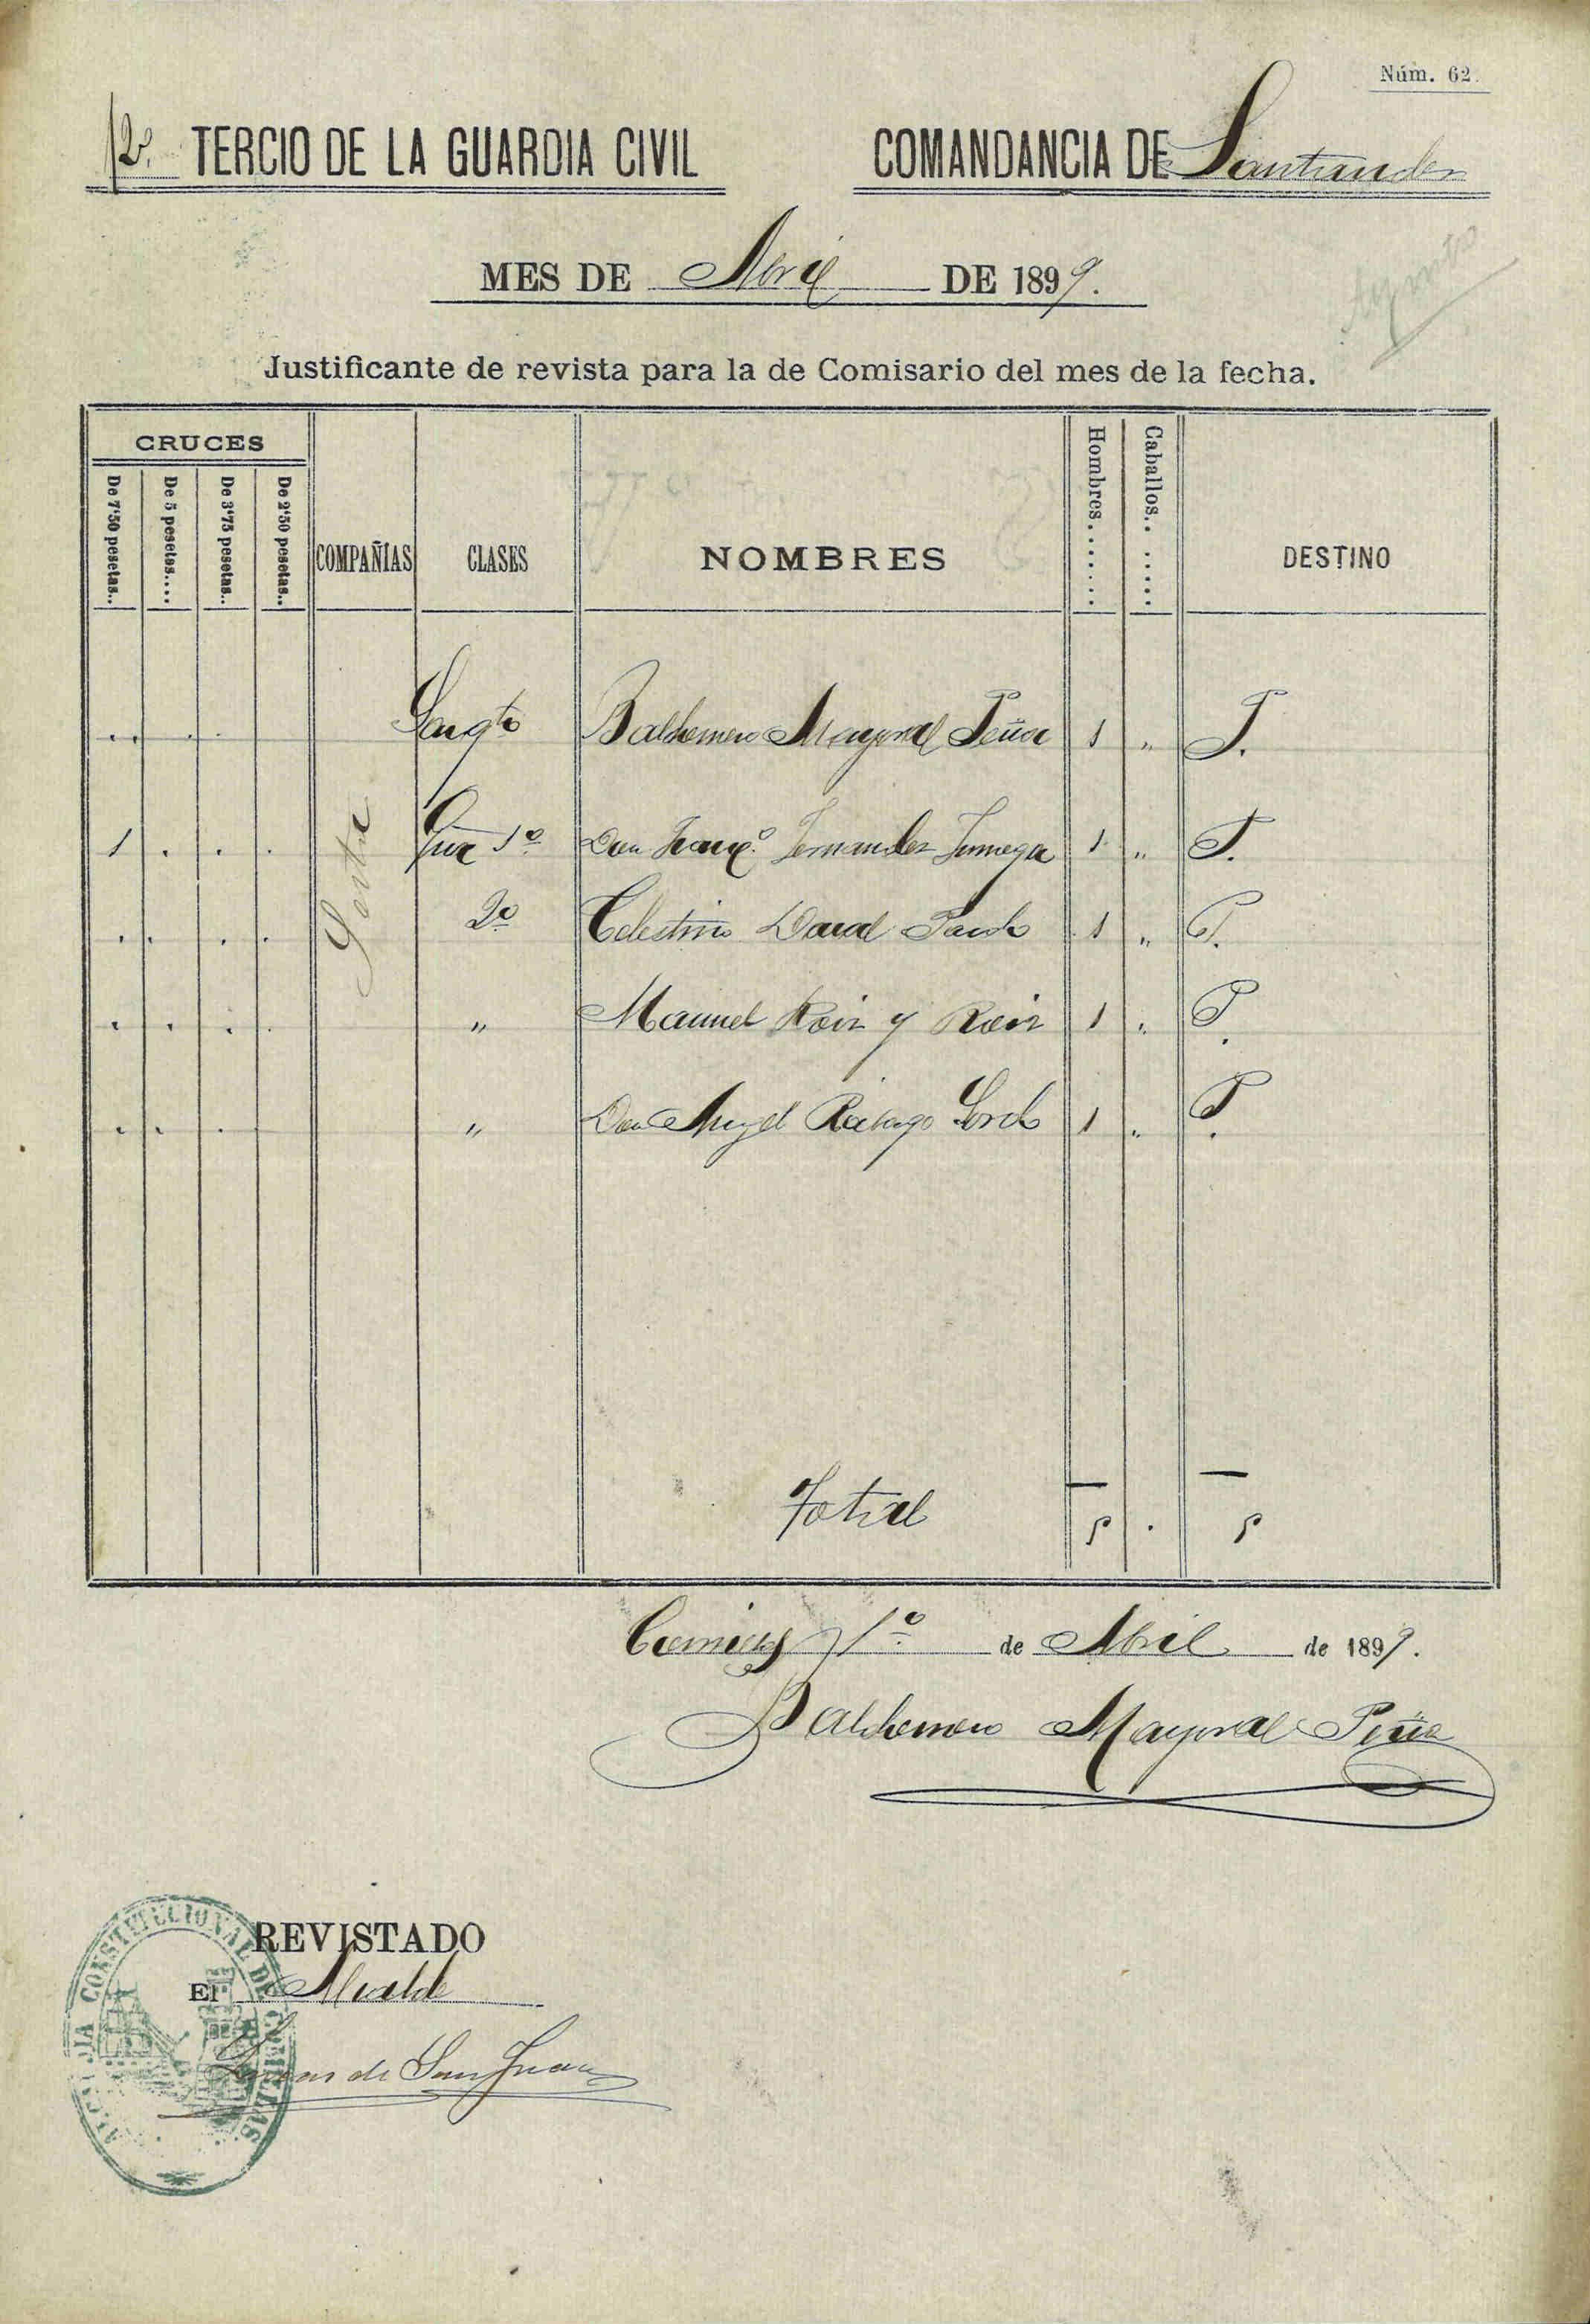 Núm. 62.
12º TERCIO DE LA GUARDIA CIVIL COMANDANCIA DE Santander
MES DE Abril DE 1899.
Justificante de revista para la de Comisario del mes de la fecha.
CRUCES
De 7'50 pesetas.. De 5 pesetas.... De 3'75 pesetas.. De 2'50 pesetas.. COMPAÑIAS CLASES NOMBRES Hombres....... Caballos....... DESTINO
Sargto Baldomero Mayoral Peña 1 " P.
1 . . . Gua 1º Don Franco. Fernandez 1 " P.
2º Celestino Pardo 1 " P.
" Manuel Roiz y Roiz 1 " P.
" Don Angel Rabago 1 " P.
Total 5 . 5
Comillas 1º de Abril de 1899.
Baldomero Mayoral Peña
REVISTADO
El Alcalde
Lucas de San Juan
ALCALDIA CONSTITUCIONAL DE COMILLAS